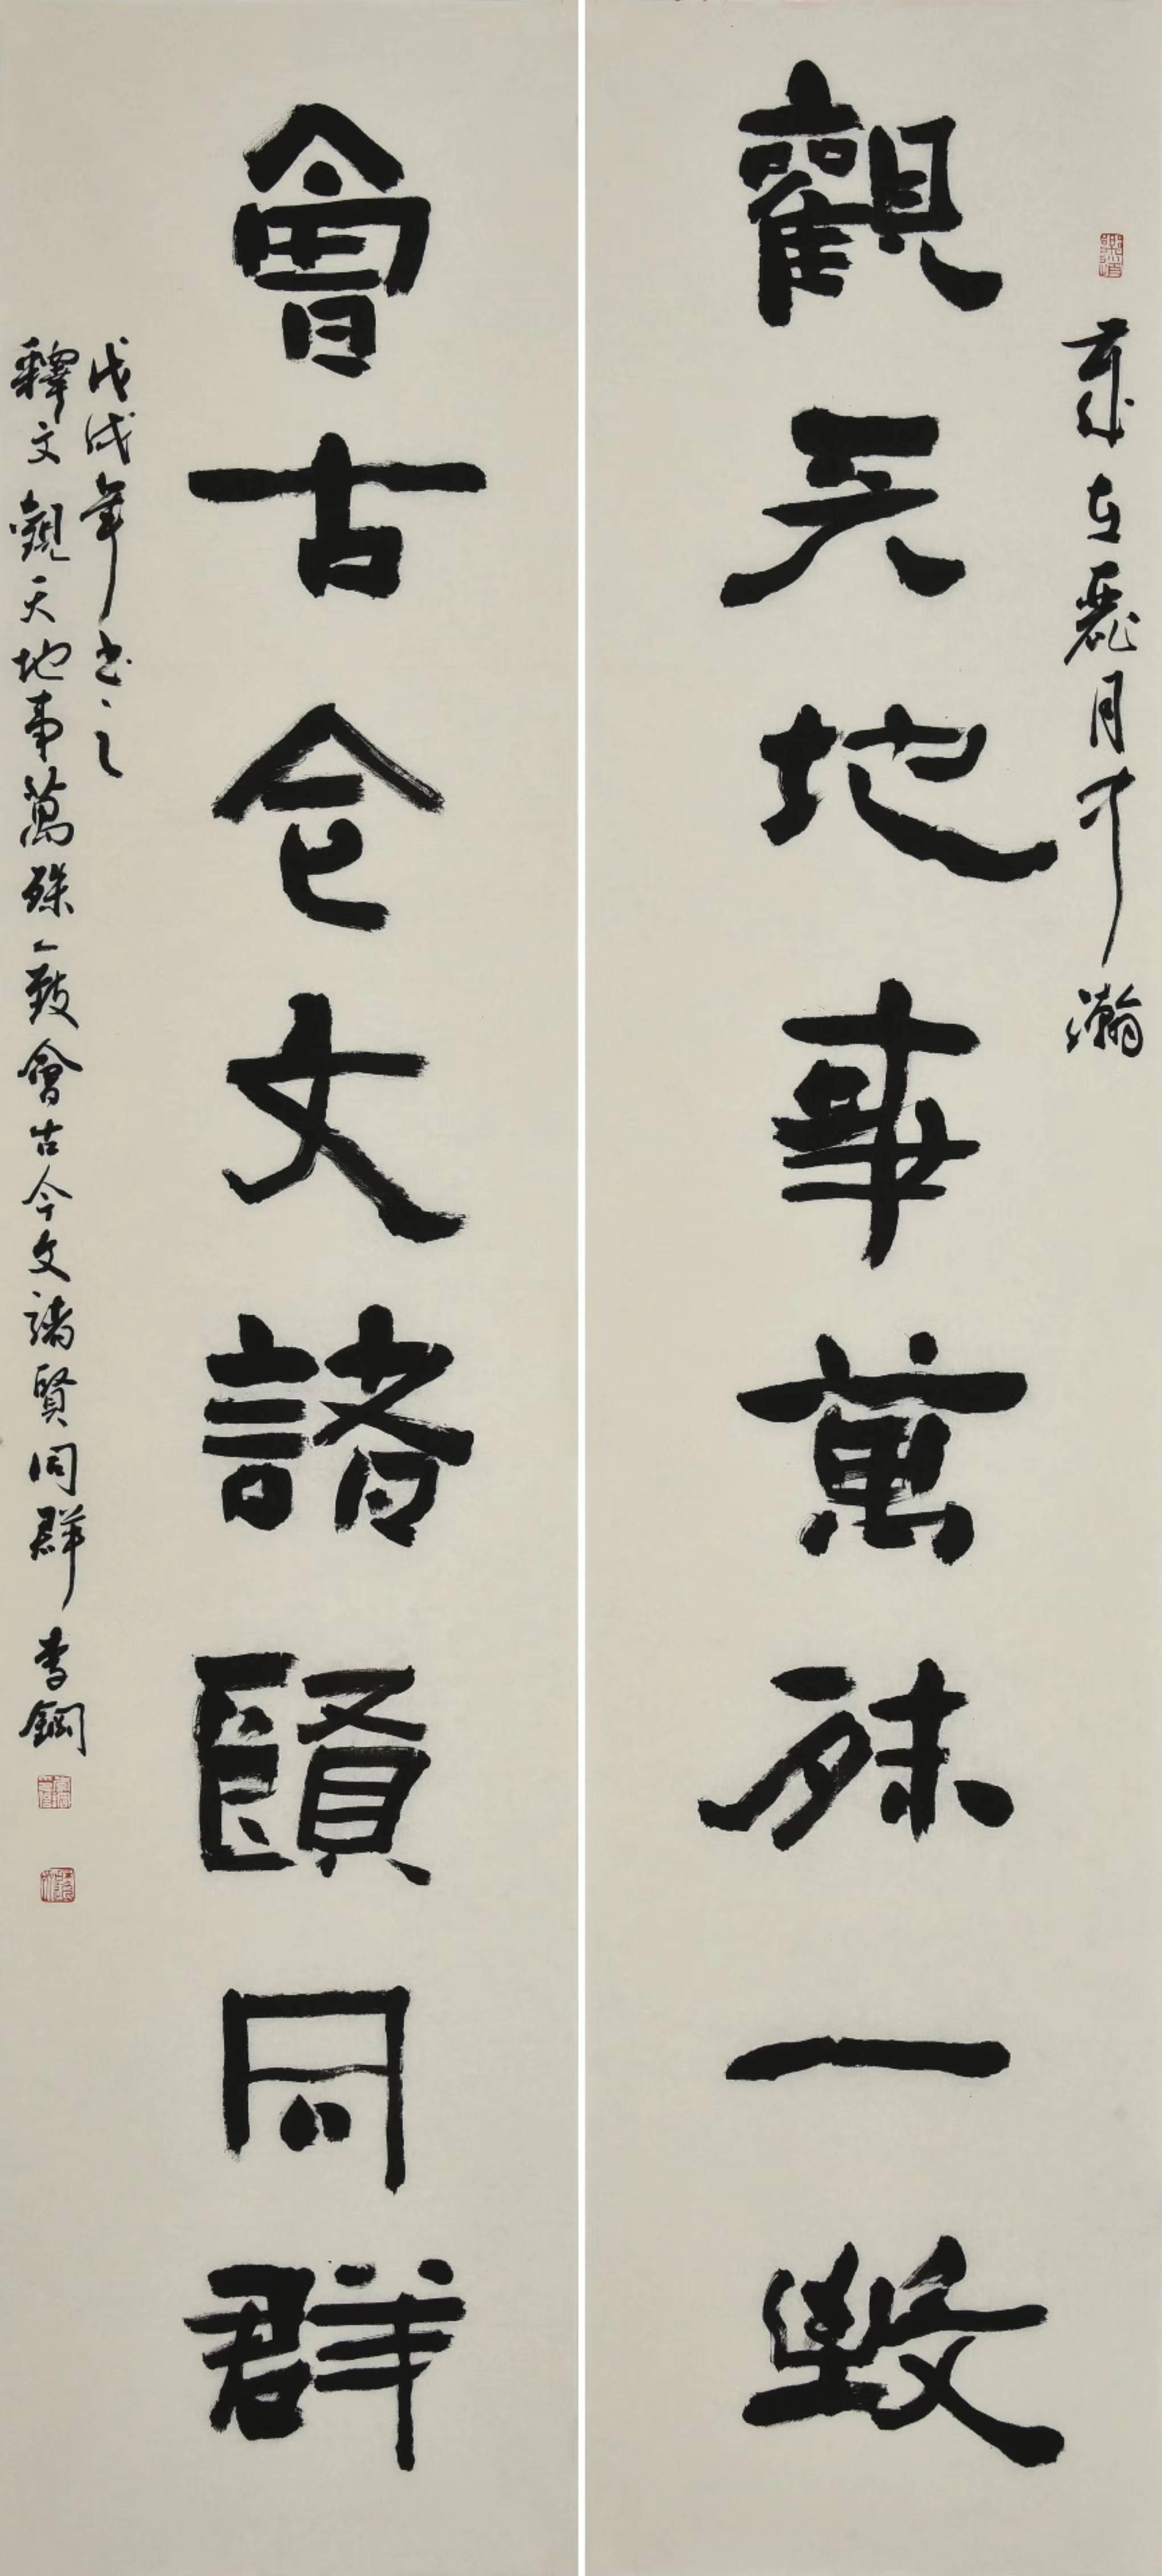 觀天地事萬殊一致
歲在麗月中瀚
會古今文諸賢同群
戊戌年書之
釋文觀天地事萬殊一致會古今文諸賢同群李鋼